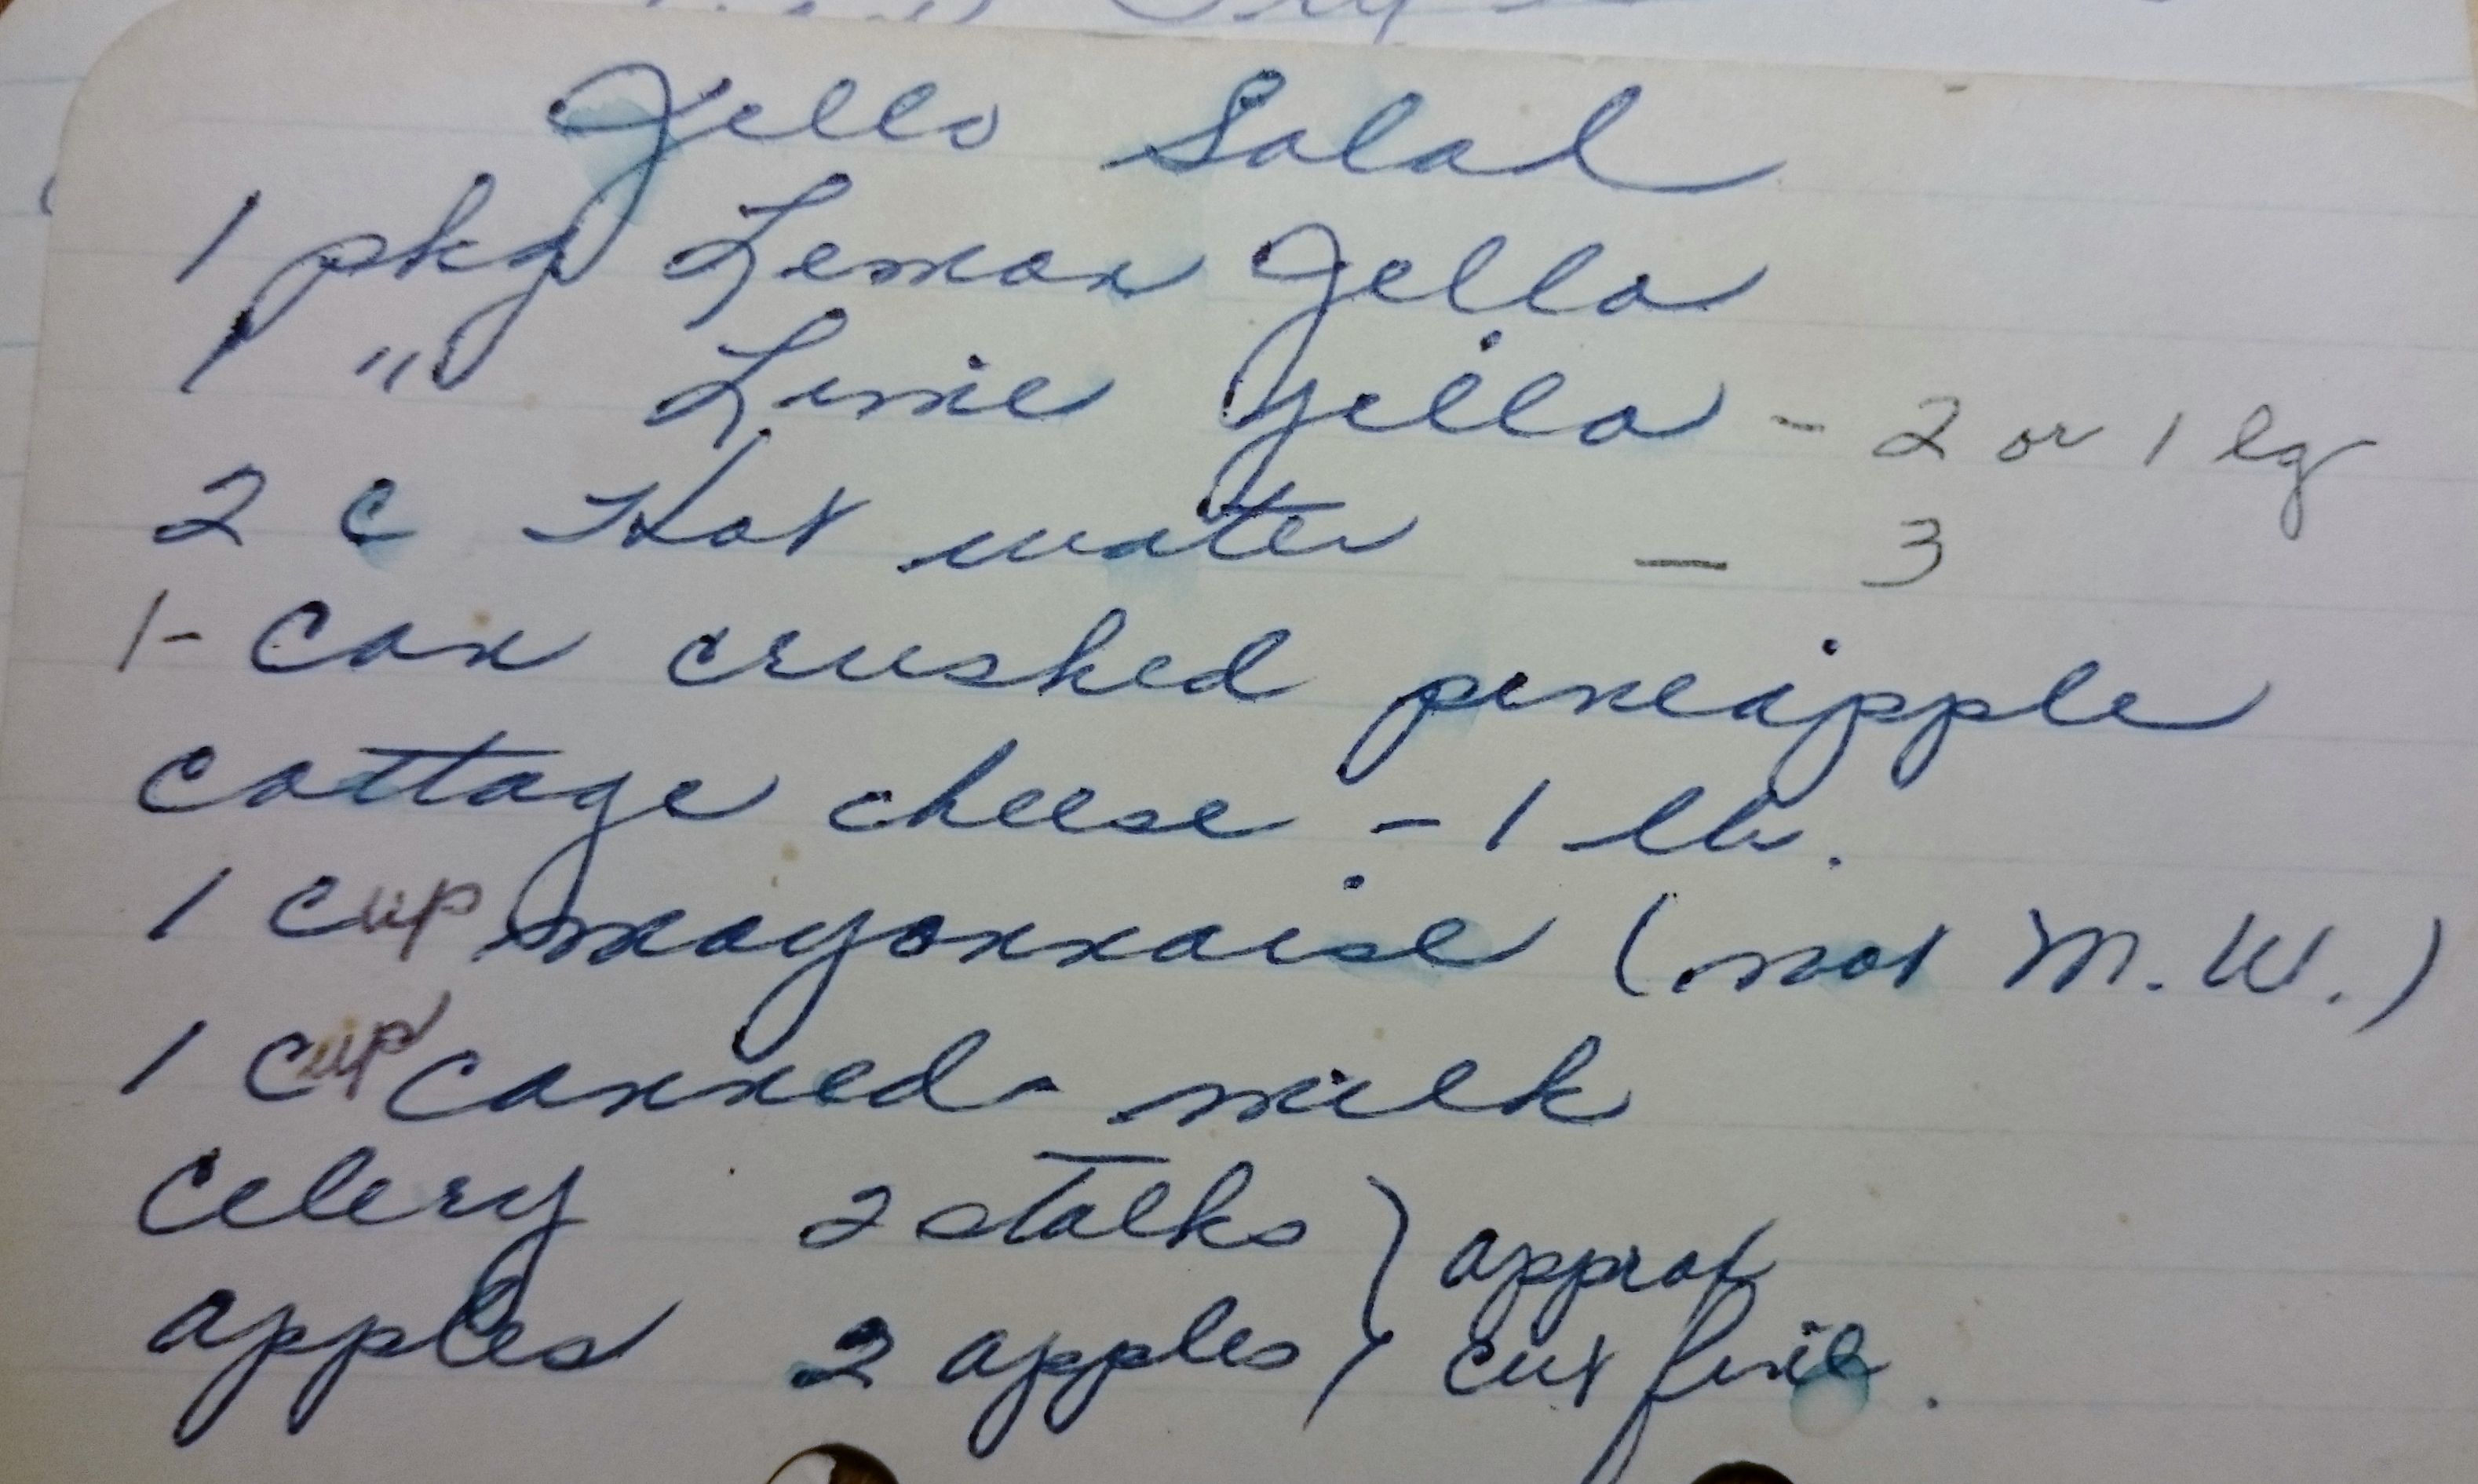 Jello Salad
1 pkg Lemon Jello
1 " Lime Jello - 2 or 1 lg
2 c Hot water — 3
1 - can crushed pineapple
cottage cheese - 1 lb.
1 cup mayonnaise (not M.W.)
1 cup canned milk
celery 2 stalks } approx
apples 2 apples } cut fine.